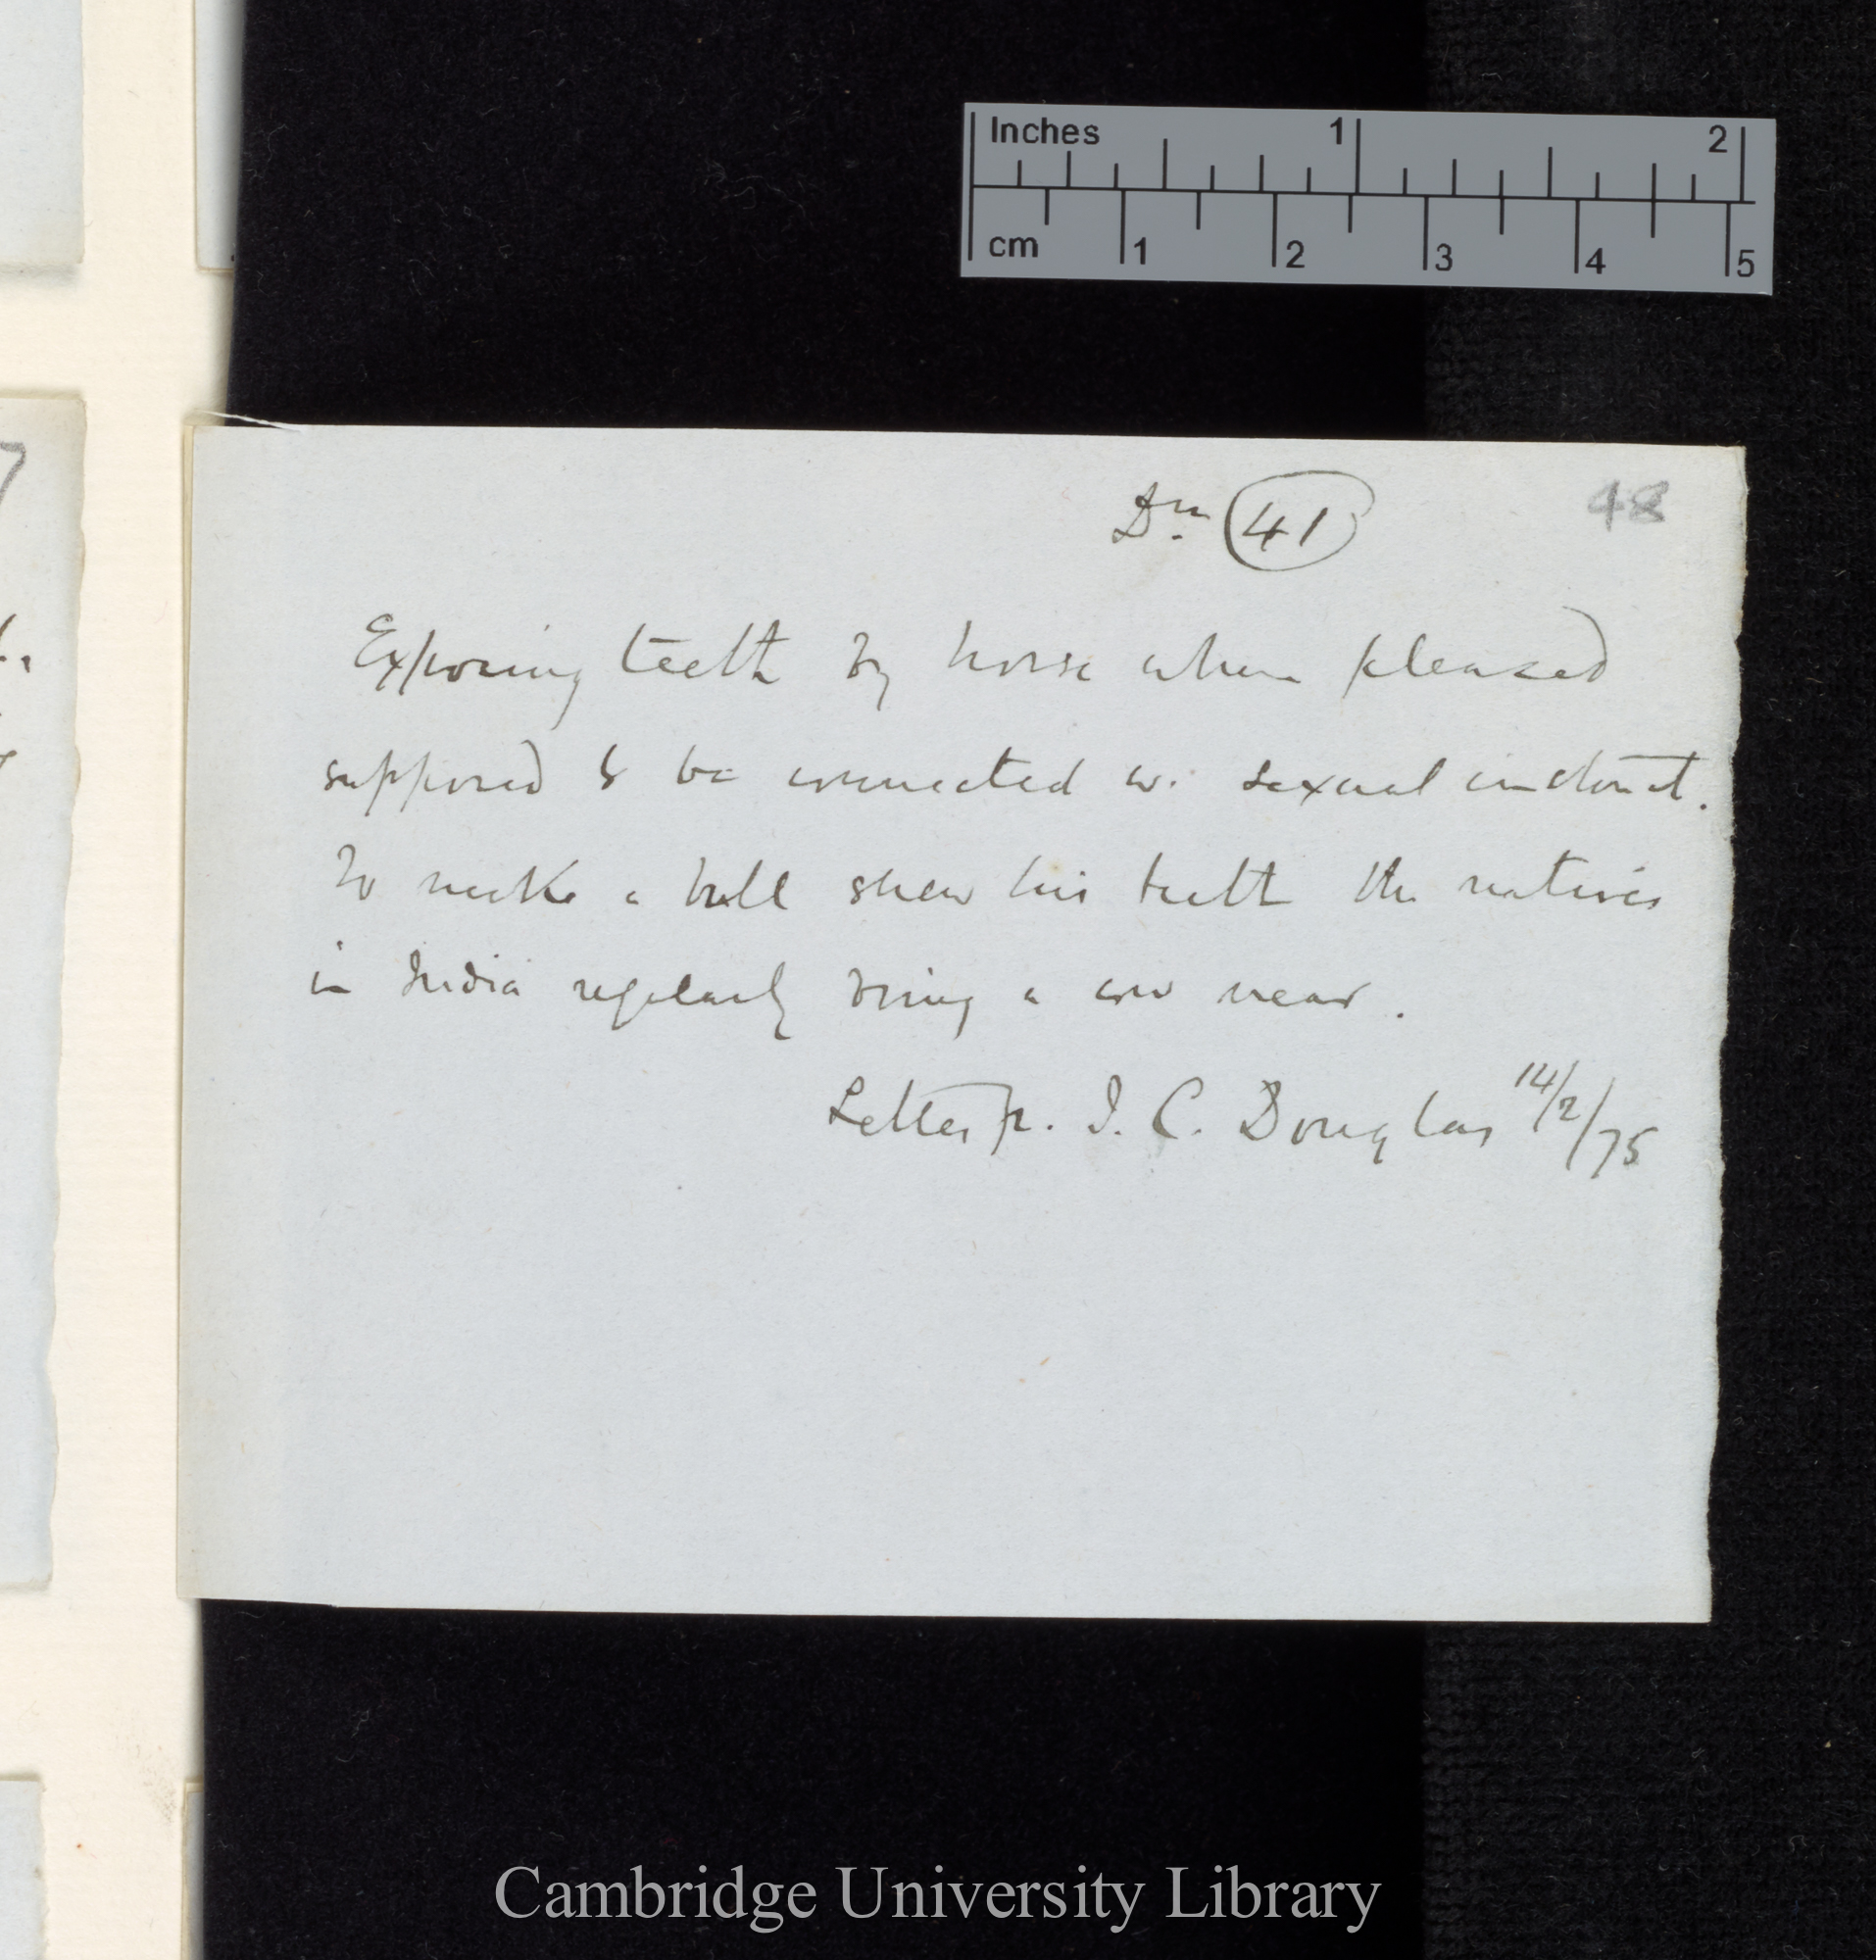 Inches 1 2
cm 1 2 3 4 5
7
Dn. 41 48
Exposing teeth by horse when pleased
supposed to be connected w. sexual instinct.
To make a bull shew his teeth the natives
in India regularly bring a cow near.
Letter fr. J. C. Douglas 14/2/75
Cambridge University Library